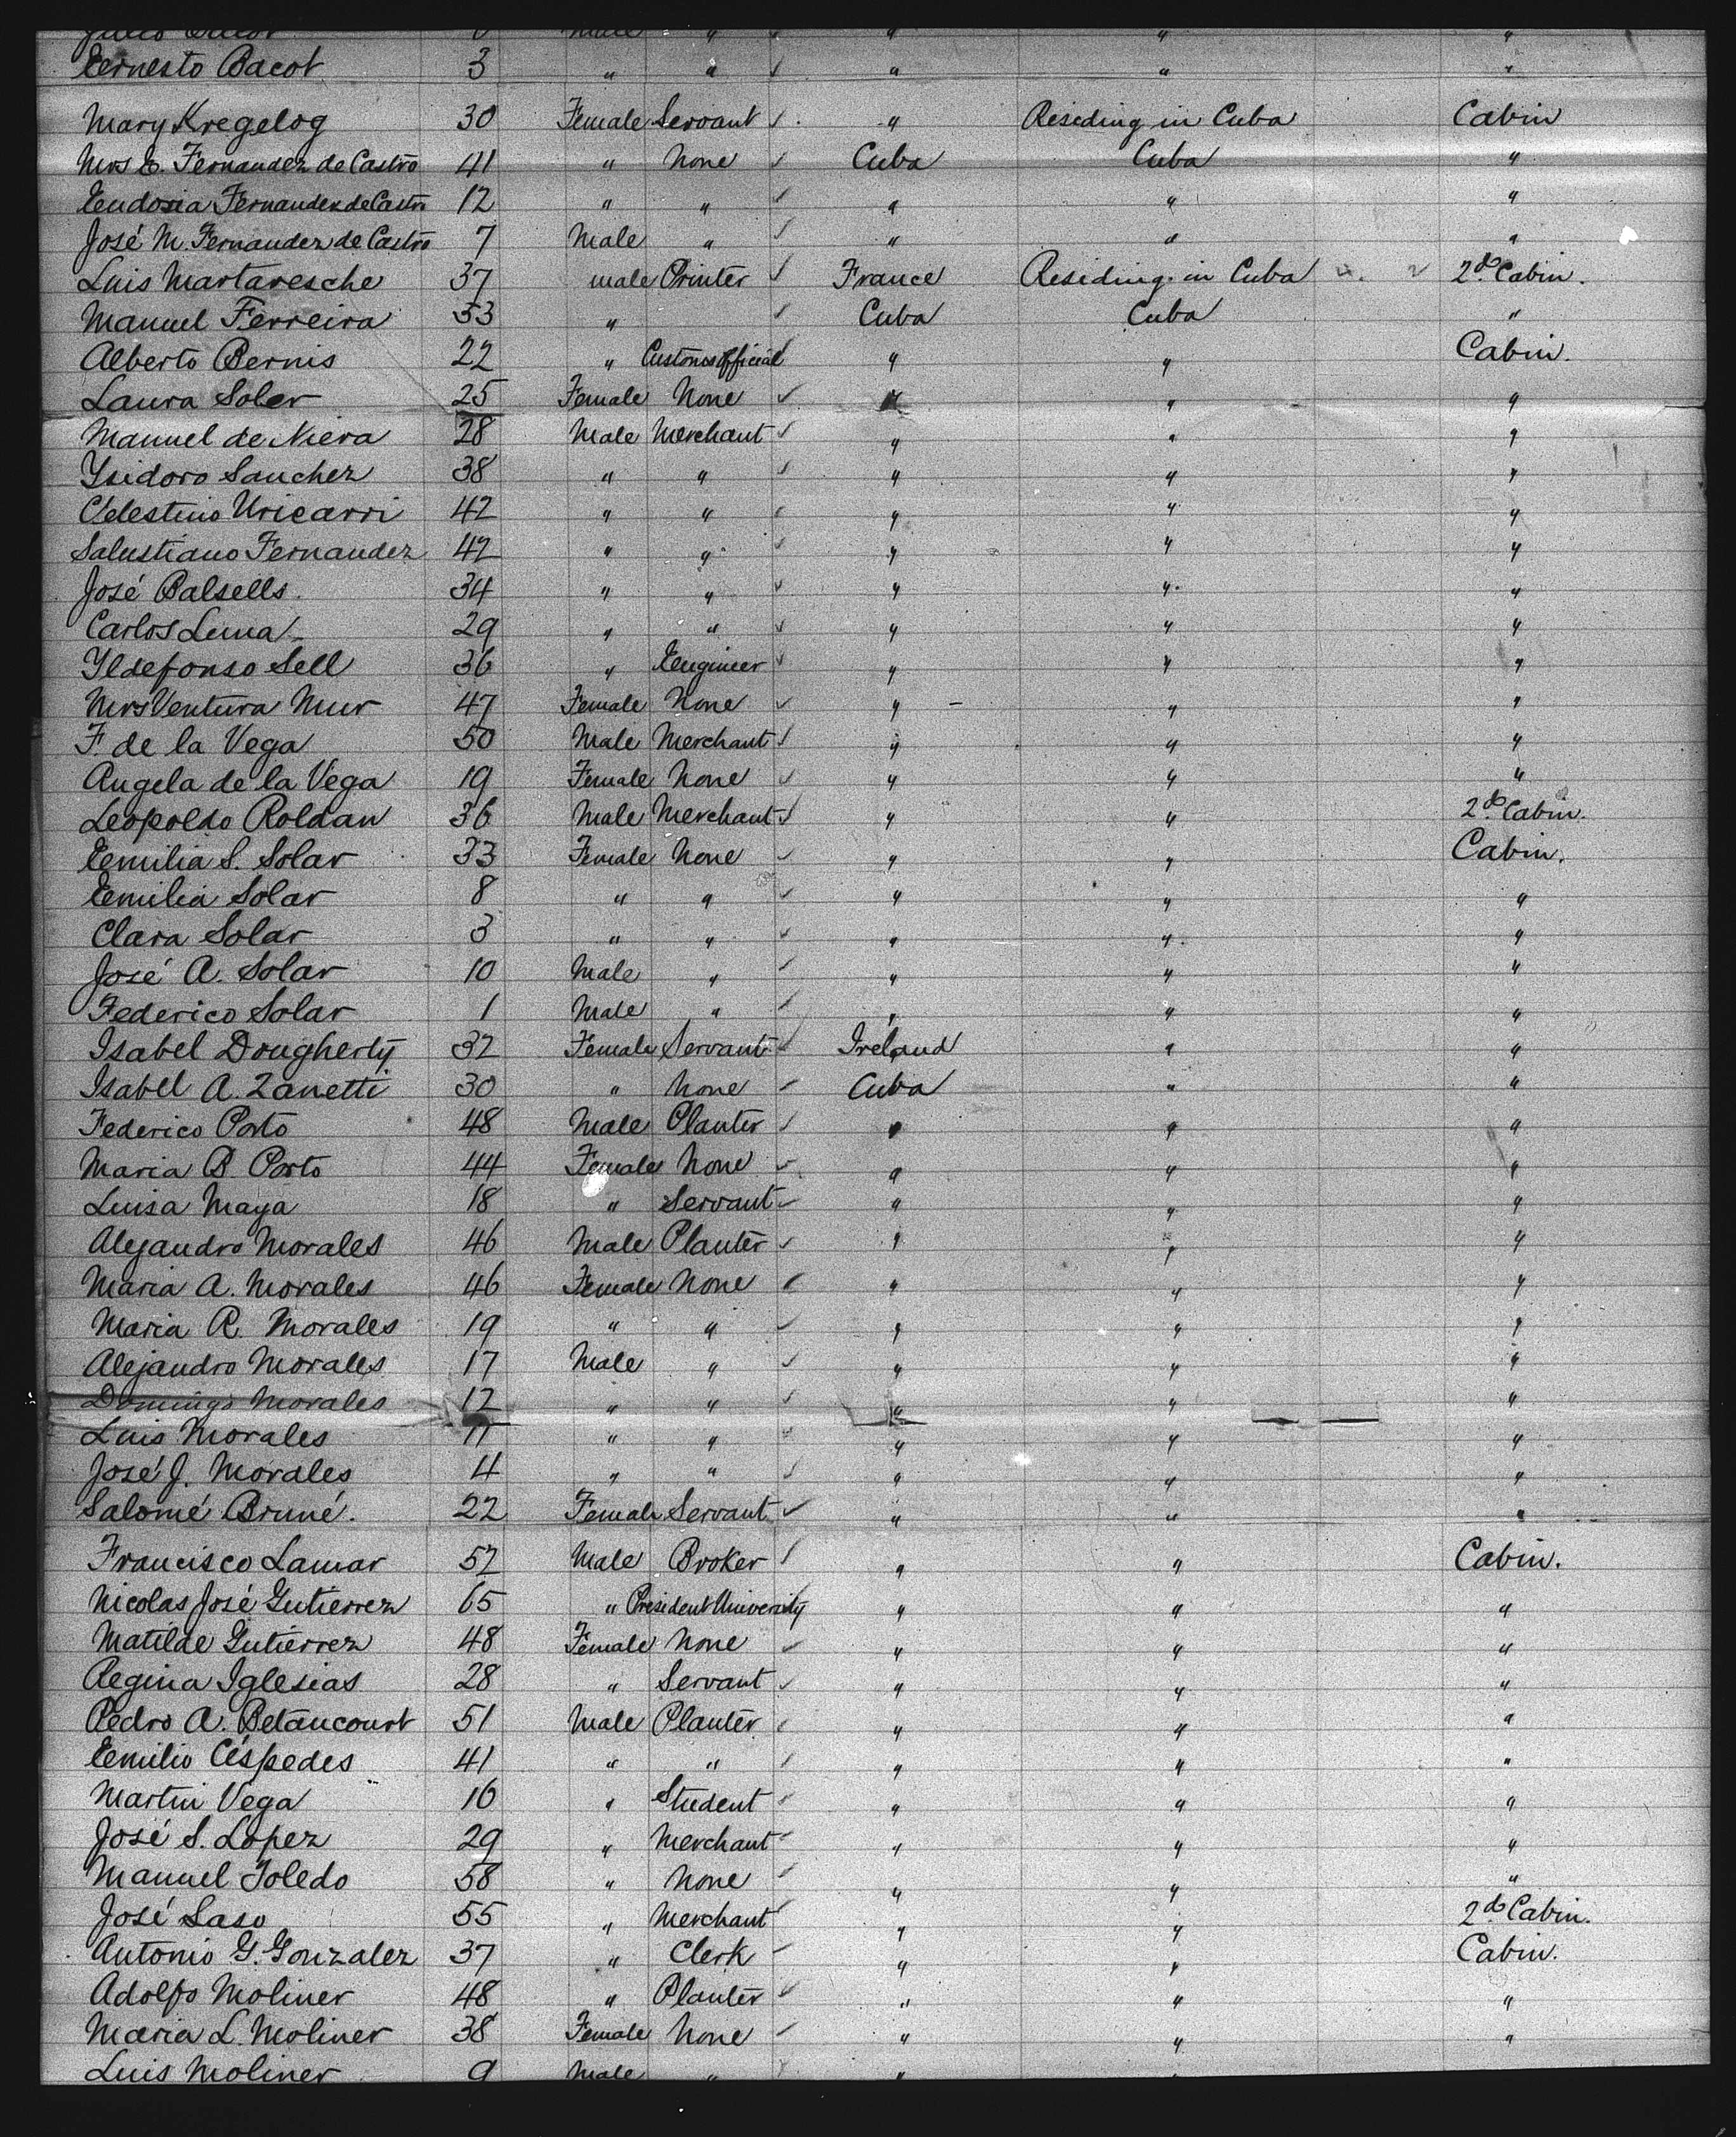 Ernesto Bacot 3 " " " " "
Mary Kregelog 30 Female Servant " Residing in Cuba Cabin
Mrs E. Fernandez de Castro 41 " None Cuba Cuba "
Eudosia Fernandez de Castro 12 " " " " "
José M. Fernandez de Castro 7 Male " " " "
Luis Martaresche 37 male Printer France Residing in Cuba 2d Cabin.
Manuel Ferreira 53 " Cuba Cuba "
Alberto Bernis 22 " Customs official " " Cabin.
Laura Soler 25 Female None " " "
Manuel de Niera 28 Male Merchant " " "
Ysidoro Sanchez 38 " " " " "
Celestino Uricarri 42 " " " " "
Salustiano Fernandez 42 " " " " "
José Balsells. 34 " " " " "
Carlos Luna 29 " " " " "
Yldefonso Sell 36 " Engineer " " "
Mrs Ventura Mur 47 Female None " " "
F de la Vega 50 Male Merchant " " "
Angela de la Vega 19 Female None " " "
Leopoldo Roldan 36 Male Merchant " " 2d Cabin.
Emilia S. Solar 33 Female None " " Cabin.
Emilia Solar 8 " " " " "
Clara Solar 3 " " " " "
José A. Solar 10 Male " " " "
Federico Solar 1 Male " " " "
Isabel Dougherty 32 Female Servant Ireland " "
Isabel A. Zanetti 30 " None Cuba " "
Federico Porto 48 Male Planter " " "
Maria B. Porto 44 Female None " " "
Luisa Maya 18 " Servant " " "
Alejandro Morales 46 Male Planter " " "
Maria A. Morales 46 Female None " " "
Maria R. Morales 19 " " " " "
Alejandro Morales 17 Male " " " "
Domingo Morales 12 " " " " "
Luis Morales 11 " " " " "
José J. Morales 4 " " " " "
Salomé Bruné. 22 Female Servant " " "
Francisco Lamar 52 Male Broker " " Cabin.
Nicolas José Gutierrez 65 " President University " " "
Matilde Gutierrez 48 Female None " " "
Regina Iglesias 28 " Servant " " "
Pedro A. Betancourt 51 Male Planter " " "
Emilio Céspedes 41 " " " " "
Martin Vega 16 " Student " " "
José S. Lopez 29 " Merchant " " "
Manuel Toledo 58 " None " " "
José Laso 55 " Merchant " " 2d Cabin.
Antonio G. Gonzalez 37 " Clerk " " Cabin.
Adolfo Moliner 48 " Planter " " "
Maria L. Moliner 38 Female None " " "
Luis Moliner 9 Male " " "